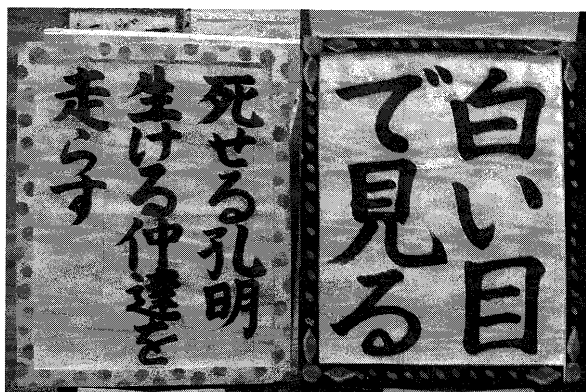 白い目
で見る
死せる孔明
生ける仲達を
走らす